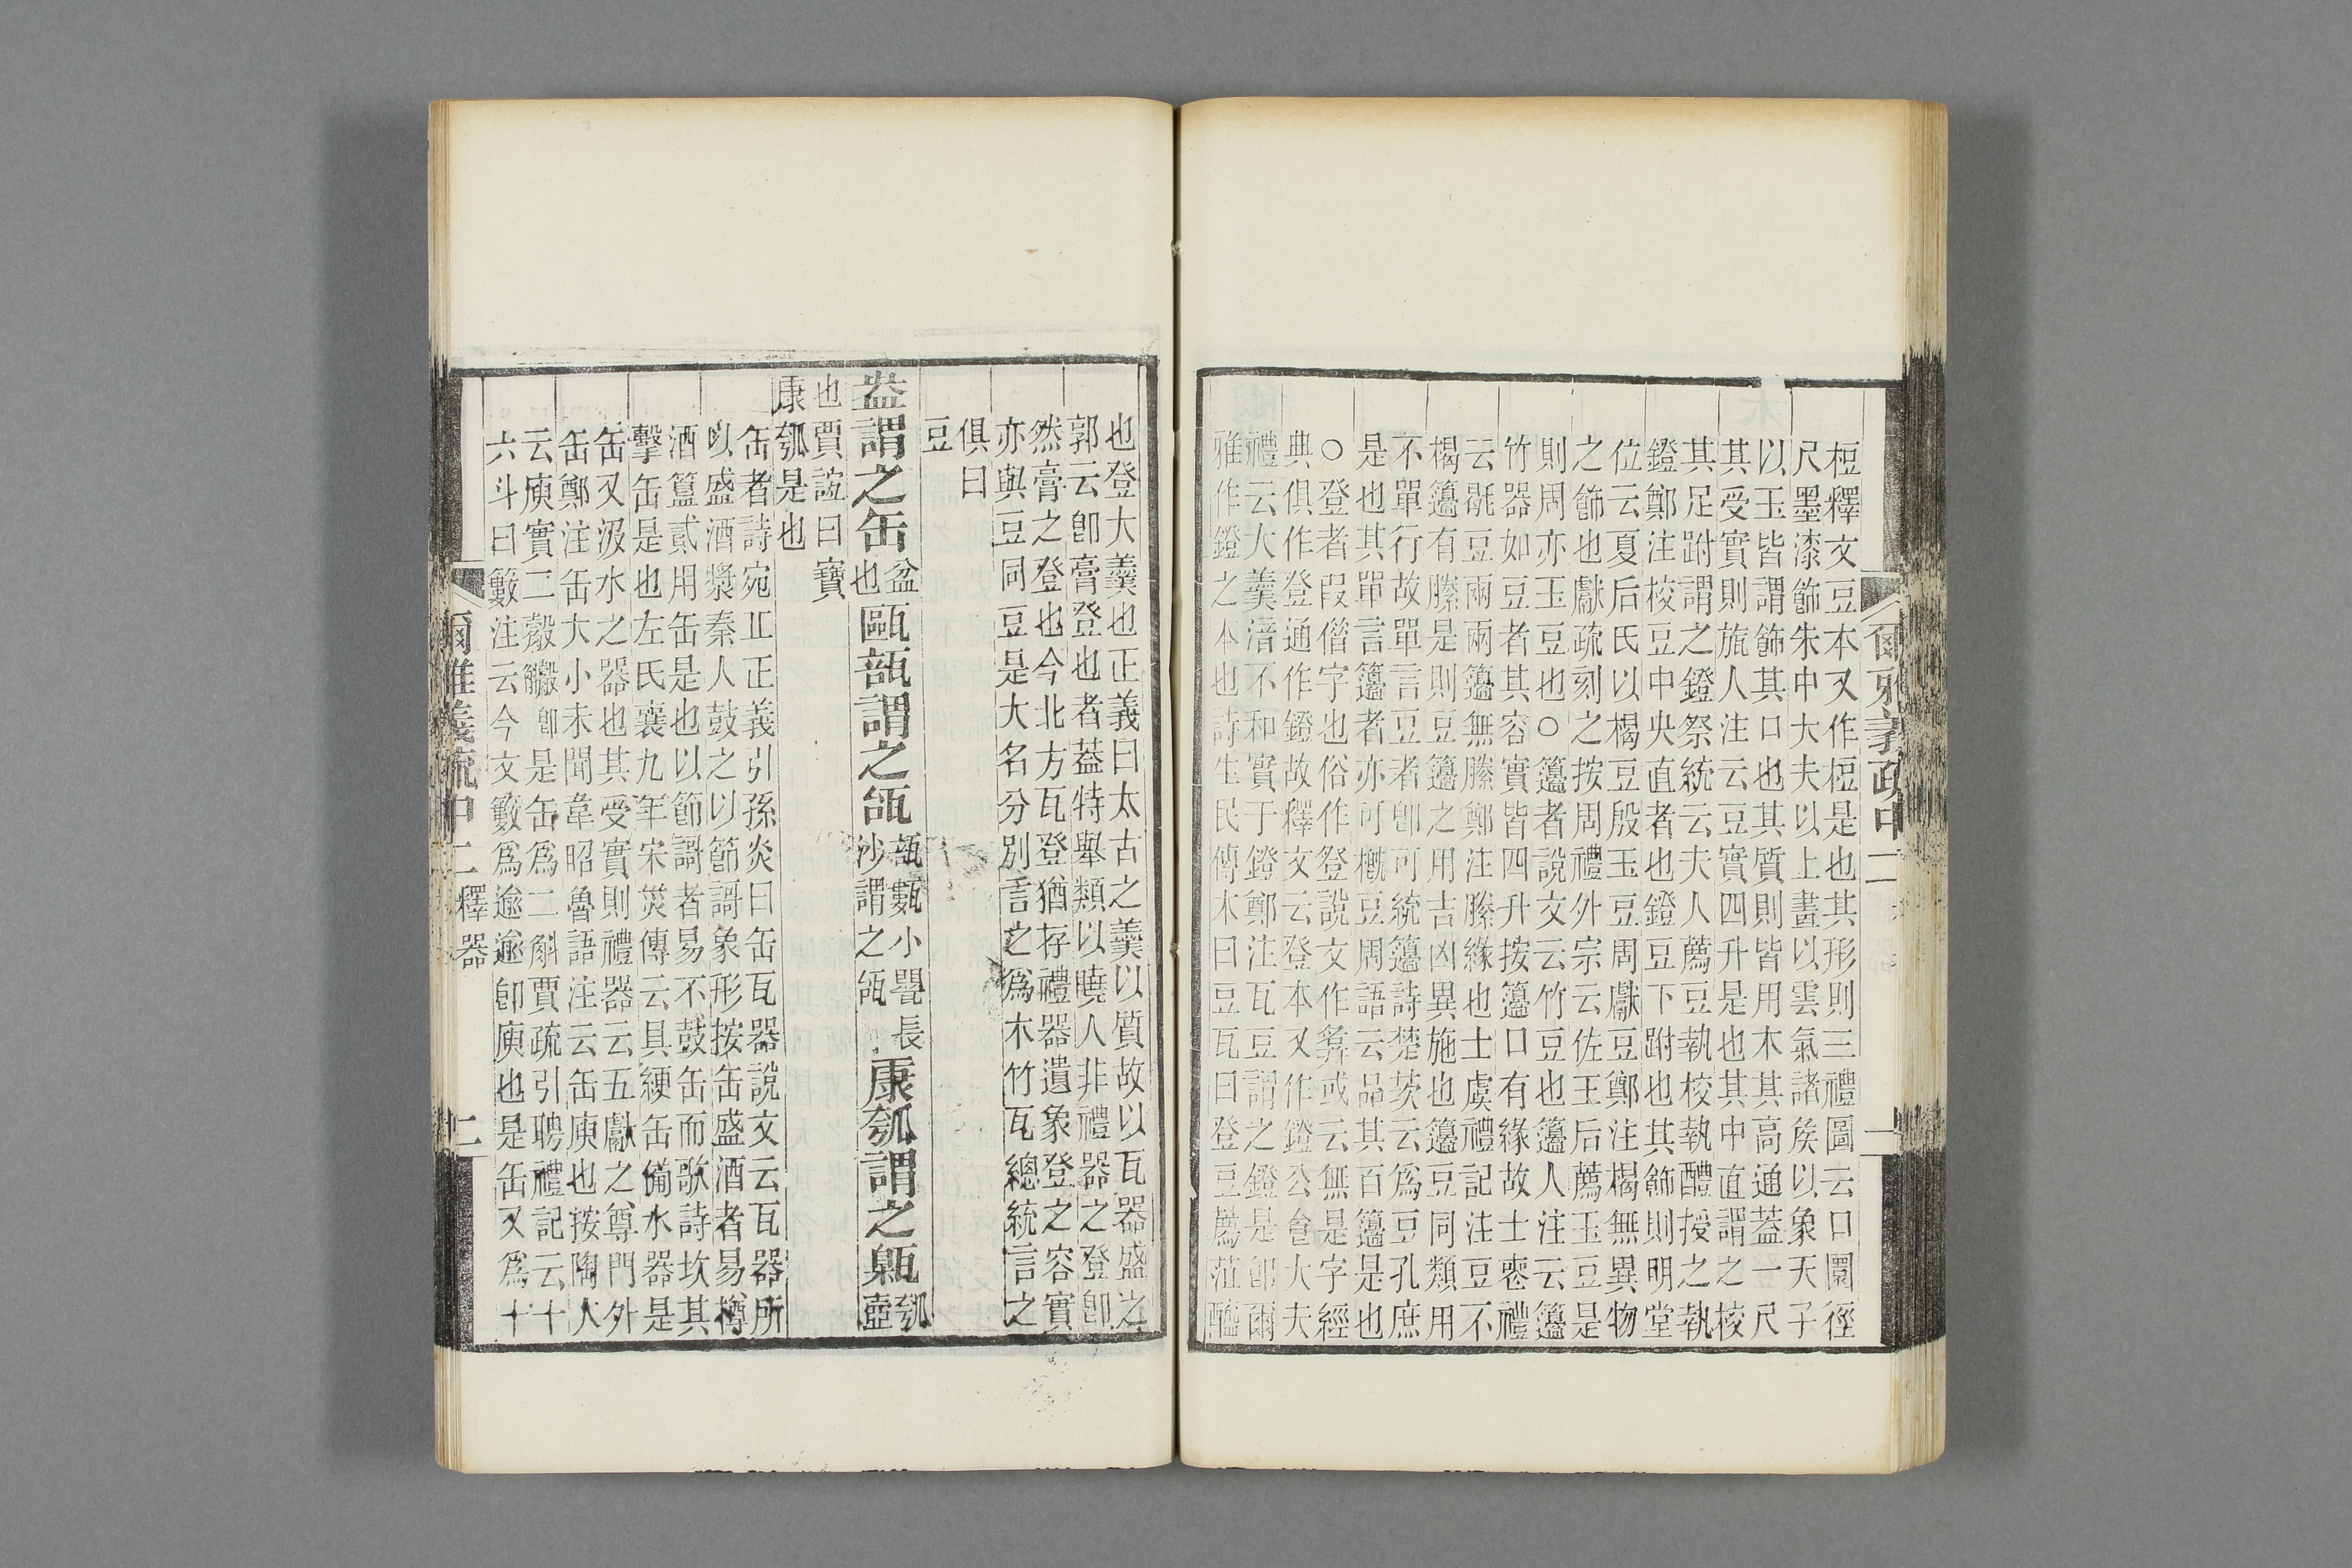 桓釋文豆本又作梪是也其形則三禮圖云口圜徑
尺墨漆飾朱中大夫以上畫以雲氣諸侯以象天子
以玉皆謂飾其口也其質則皆用木其高通蓋一尺
其受實則旊人注云豆實四升是也其中直謂之校
其足跗謂之鐙祭統云夫人薦豆執校執醴授之執
鐙鄭注校豆中央直者也鐙豆下跗也其飾則明堂
位云夏后氏以楬豆殷玉豆周獻豆鄭注楬無異物
之飾也獻疏刻之按周禮外宗云佐王后薦玉豆是
則周亦玉豆也○籩者說文云竹豆也籩人注云籩
竹器如豆者其容實皆四升按籩口有緣故士喪禮
云毼豆兩兩籩無縢鄭注縢緣也士虞禮記注豆不
楬籩有縢是則豆籩之用吉凶異施也籩豆同類用
不單行故單言豆者卽可統籩詩楚茨云爲豆孔庶
是也其單言籩者亦可概豆周語云品其百籩是也
○登者叚偕字也俗作登說文作䇺或云無是字經
典俱作登通作鐙故釋文云登本又作鐙公食大夫
禮云大羹湆不和實于鐙鄭注瓦豆謂之鐙是卽爾
雅作鐙之本也詩生民傳木曰豆瓦曰登豆薦菹醢
也登大羹也正義曰太古之羹以質故以瓦器盛之
郭云卽膏登也者蓋特舉類以曉人非禮器之登卽
然膏之登也今北方瓦登猶存禮器遺象登之容實
亦與豆同豆是大名分別言之爲木竹瓦總統言之
俱曰
豆
盎謂之缶盆也甌瓿謂之瓵瓿甊小甖長沙謂之瓵康瓠謂之甈瓠壺
也賈誼曰寶
康瓠是也
缶者詩宛丘正義引孫炎曰缶瓦器說文云瓦器所
以盛酒漿秦人鼓之以節謌象形按缶盛酒者易樽
酒簋貳用缶是也以節謌者易不鼓缶而歌詩坎其
擊缶是也左氏襄九年宋災傳云具綆缶備水器是
缶又汲水之器也其受實則禮器云五獻之尊門外
缶鄭注缶大小未聞韋昭魯語注云缶庾也按陶人
云庾實二觳觳卽是缶爲二斛賈疏引聘禮記云十
六斗曰籔注云今文籔爲逾逾卽庾也是缶又爲十
爾雅義疏中二 釋器 二
爾雅義疏中二 一